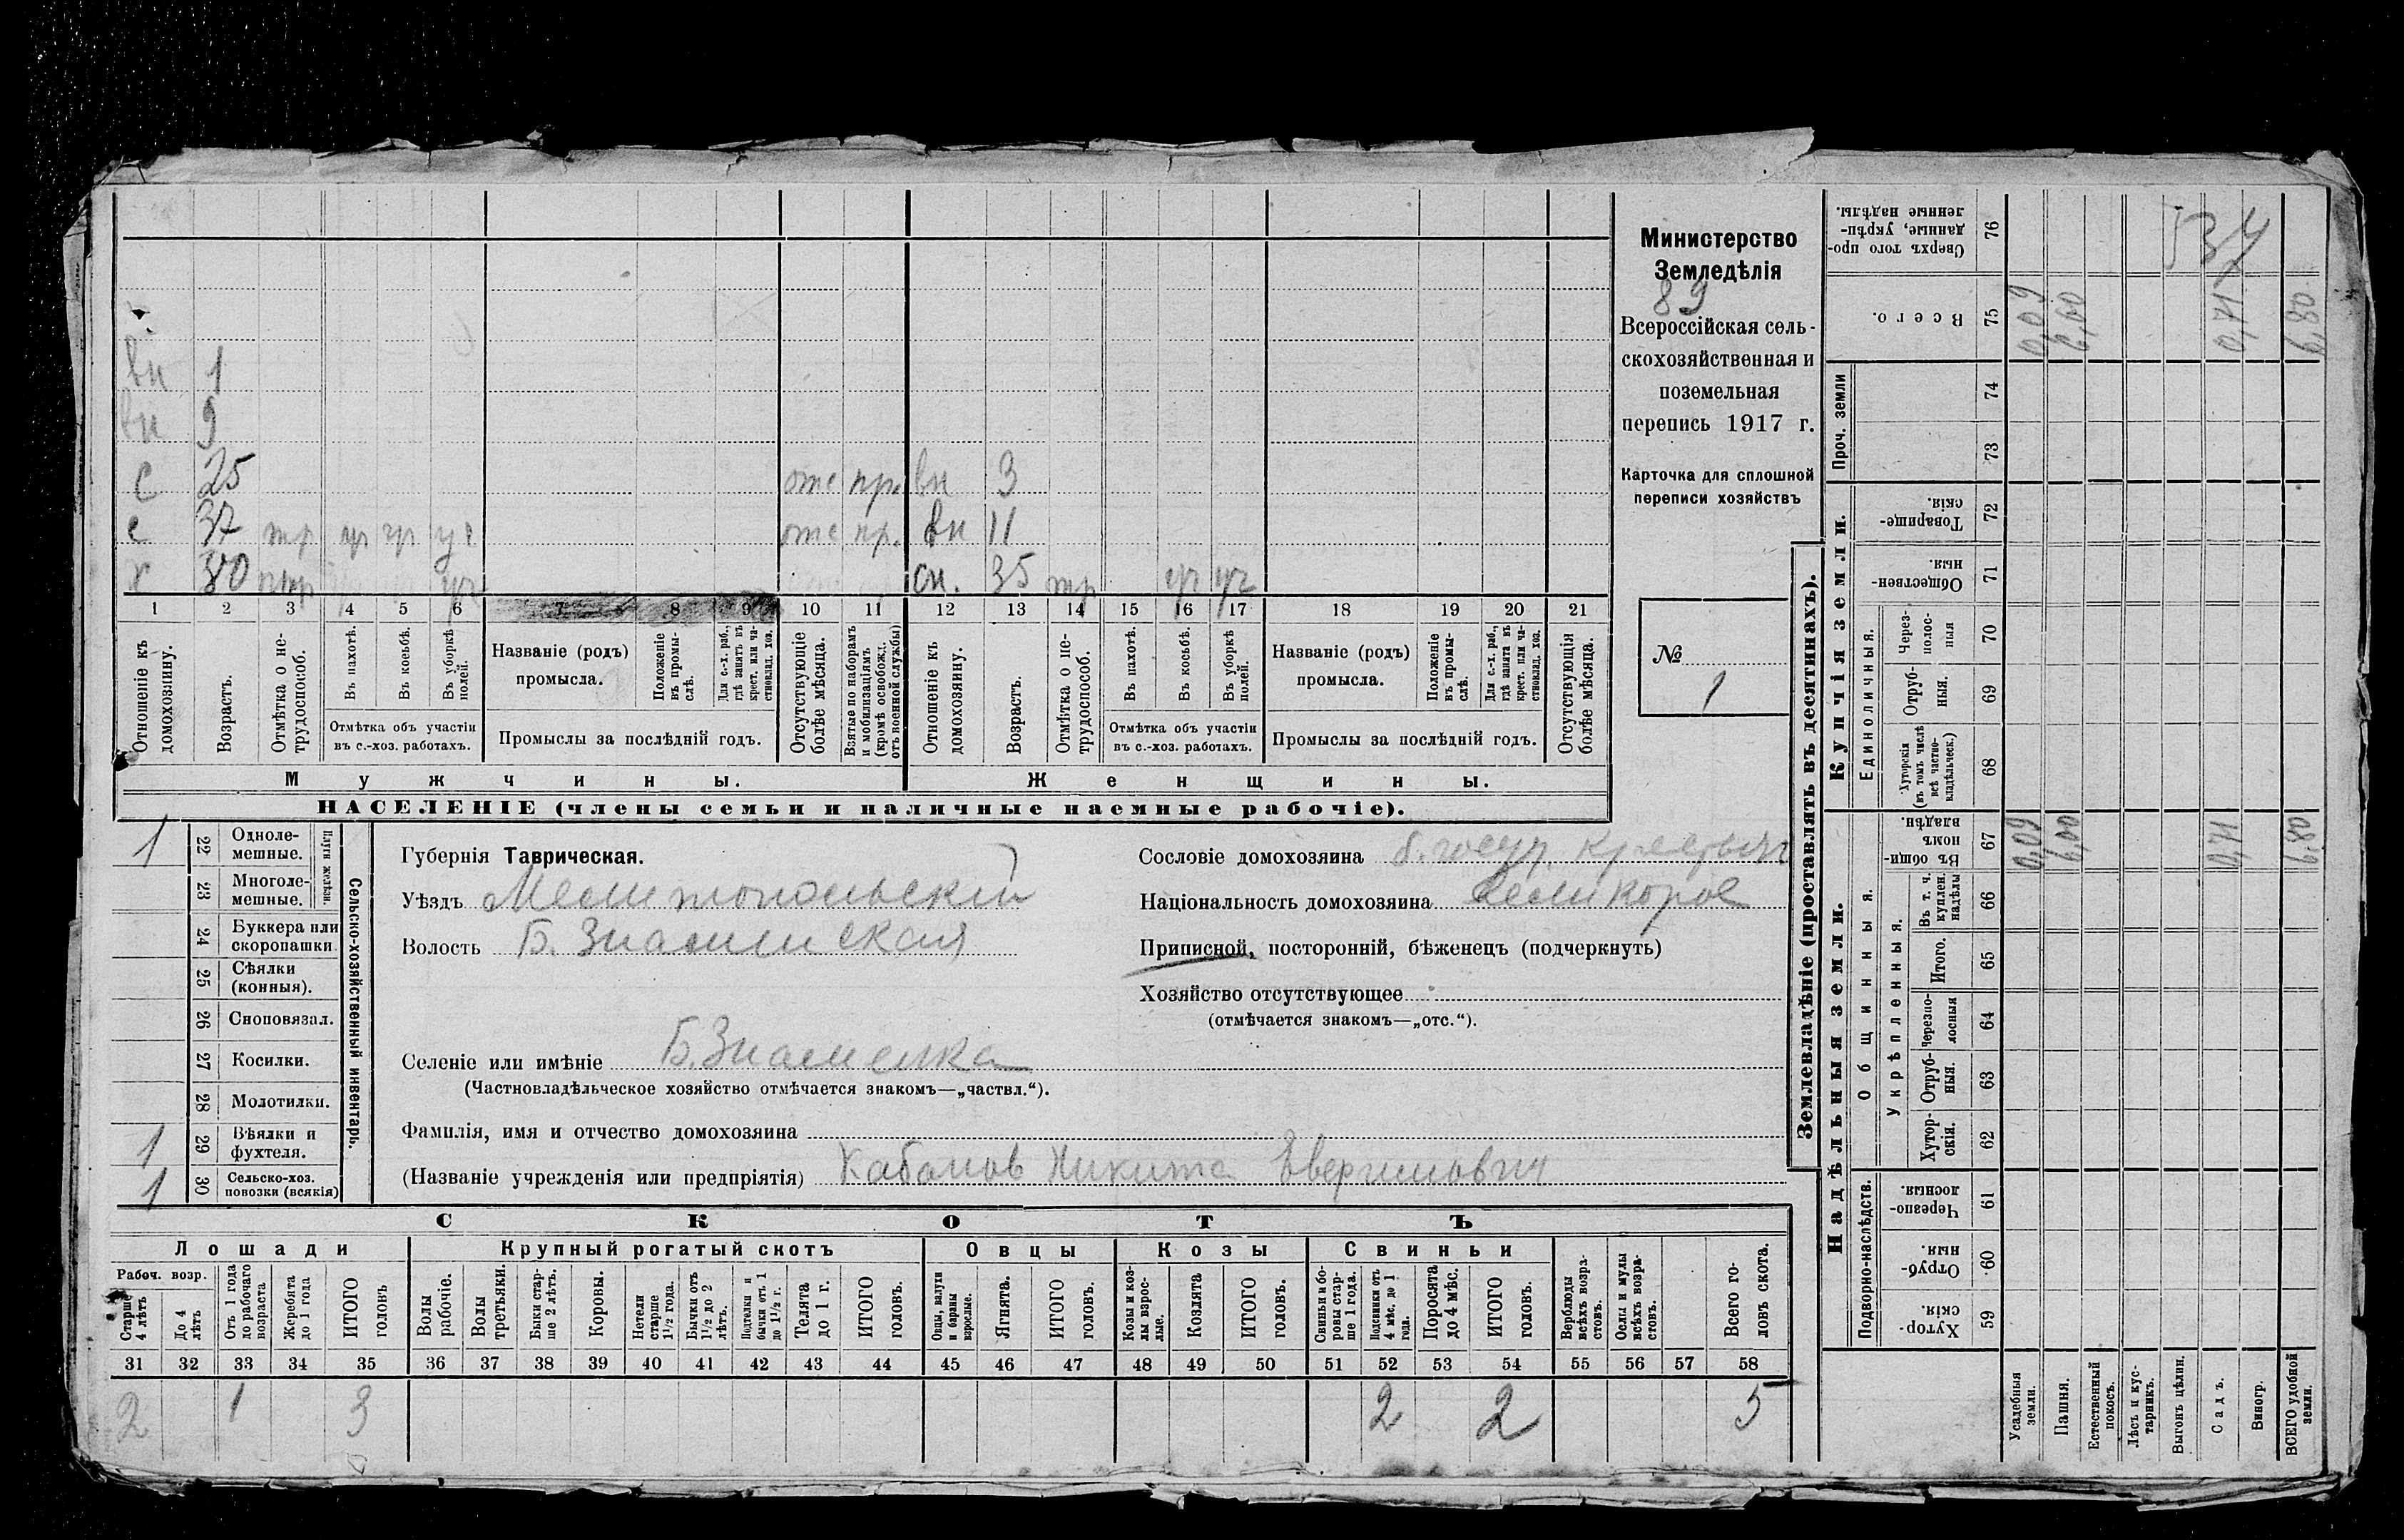 Министерство
Земледѣлія
89
Всероссійская сель-
скохозяйственная и
поземельная
перепись 1917 г.
Карточка для сплошной
переписи хозяйствъ
№
1
вн 1
вн 9
с 25 отс пр. вн 3
с 37 тр уч уч уч отс пр. вн 11
х 80 птр уч сн. 35 тр уч уч
1 2 3 4 5 6 7 8 9 10 11 12 13 14 15 16 17 18 19 20 21
Отношеніе къ домохозяину.
Возрастъ.
Отмѣтка о не-трудоспособ.
Въ пахотѣ.
Въ косьбѣ.
Въ уборкѣ полей.
Отмѣтка объ участіи
въ с.-хоз. работахъ.
Названіе (родъ)
промысла.
Положеніе въ промы-слѣ.
Для с.-х. раб., гдѣ занятъ въ крест. или ча-стновлад. хоз.
Промыслы за послѣдній годъ.
Отсутствующіе болѣе мѣсяца.
Взятые по наборамъ и мобилизаціямъ (кромѣ освобожд. отъ военной службы)
Отношеніе къ домохозяину.
Возрастъ.
Отмѣтка о не-трудоспособ.
Въ пахотѣ.
Въ косьбѣ.
Въ уборкѣ полей.
Отмѣтка объ участіи
въ с.-хоз. работахъ.
Названіе (родъ)
промысла.
Положеніе въ промы-слѣ.
Для с.-х. раб., гдѣ занята въ крест. или ча-стновлад. хоз.
Промыслы за послѣдній годъ.
Отсутствующія болѣе мѣсяца.
Мужчины. Женщины.
НАСЕЛЕНІЕ (члены семьи и наличные наемные рабочіе).
1 22 Одноле-мешные.
23 Многоле-мешные.
Плуги желѣзн.
24 Буккера или скоропашки
25 Сѣялки (конныя).
26 Сноповязал.
27 Косилки.
28 Молотилки.
1 29 Вѣялки и фухтеля.
1 30 Сельско-хоз. повозки (всякія)
Сельско-хозяйственный инвентарь.
Губернія Таврическая.
Уѣздъ Мелитопольскій
Волость Б. Знаменская
Селеніе или имѣніе Б. Знаменка
(Частновладѣльческое хозяйство отмѣчается знакомъ—„частвл.“).
Фамилія, имя и отчество домохозяина
(Названіе учрежденія или предпріятія) Кабанов Никита
Сословіе домохозяина б. госуд. крестьян
Національность домохозяина великорос
Приписной, посторонній, бѣженецъ (подчеркнуть)
Хозяйство отсутствующее
(отмѣчается знакомъ—„отс.“).
СКОТЪ
Лошади Крупный рогатый скотъ Овцы Козы Свиньи
Рабоч. возр.
Старше 4 лѣтъ
До 4 лѣтъ
Отъ 1 года до рабочаго возраста
Жеребята до 1 года
ИТОГО головъ
Волы рабочіе.
Волы третьяки.
Быки стар-ше 2 лѣтъ.
Коровы.
Нетели старше 1½ года.
Бычки отъ 1½ до 2 лѣтъ.
Подтелки и бычки отъ 1 до 1½ г.
Телята до 1 г.
ИТОГО головъ.
Овцы, валухи и бараны взрослые.
Ягнята.
ИТОГО головъ.
Козы и коз-лы взрос-лые.
Козлята
ИТОГО головъ.
Свиньи и бо-ровы стар-ше 1 года.
Подсвинки отъ 4 мѣс. до 1 года.
Поросята до 4 мѣс.
ИТОГО головъ.
Верблюды всѣхъ возра-стовъ.
Ослы и мулы всѣхъ возра-стовъ.
Всего го-ловъ скота.
31 32 33 34 35 36 37 38 39 40 41 42 43 44 45 46 47 48 49 50 51 52 53 54 55 56 57 58
2 1 3 2 2 5
Землевладѣніе (проставлять въ десятинахъ).
Надѣльныя земли.
Купчія земли.
Проч. земли
Подворно-наслѣдств.
Общинныя.
Укрѣпленныя.
Единоличныя.
Сверхъ того про-данные, укрѣп-ленные надѣлы. 76
537
Всего. 75 0,09 6,00 0,71 6,80
74
73
Товарище-скія. 72
Обществен-ныя. 71
Через-полос-ныя 70
Отруб-ныя. 69
Хуторскія (въ томъ числѣ всѣ частно-владѣльческ.) 68
Въ общин-номъ владѣн. 67 0,09 6,00 0,71 6,80
Въ т. ч. куплен. надѣлы 66
Итого. 65
Черезпо-лосныя 64
Отруб-ныя. 63
Хутор-скія. 62
Черезпо-лосныя. 61
Отруб-ныя. 60
Хутор-скія. 59
Усадебныя земли.
Пашня.
Естественный покосъ.
Лѣсъ и кус-тарникъ.
Выгонъ цѣлин.
Садъ.
Виногр.
ВСЕГО удобной земли.